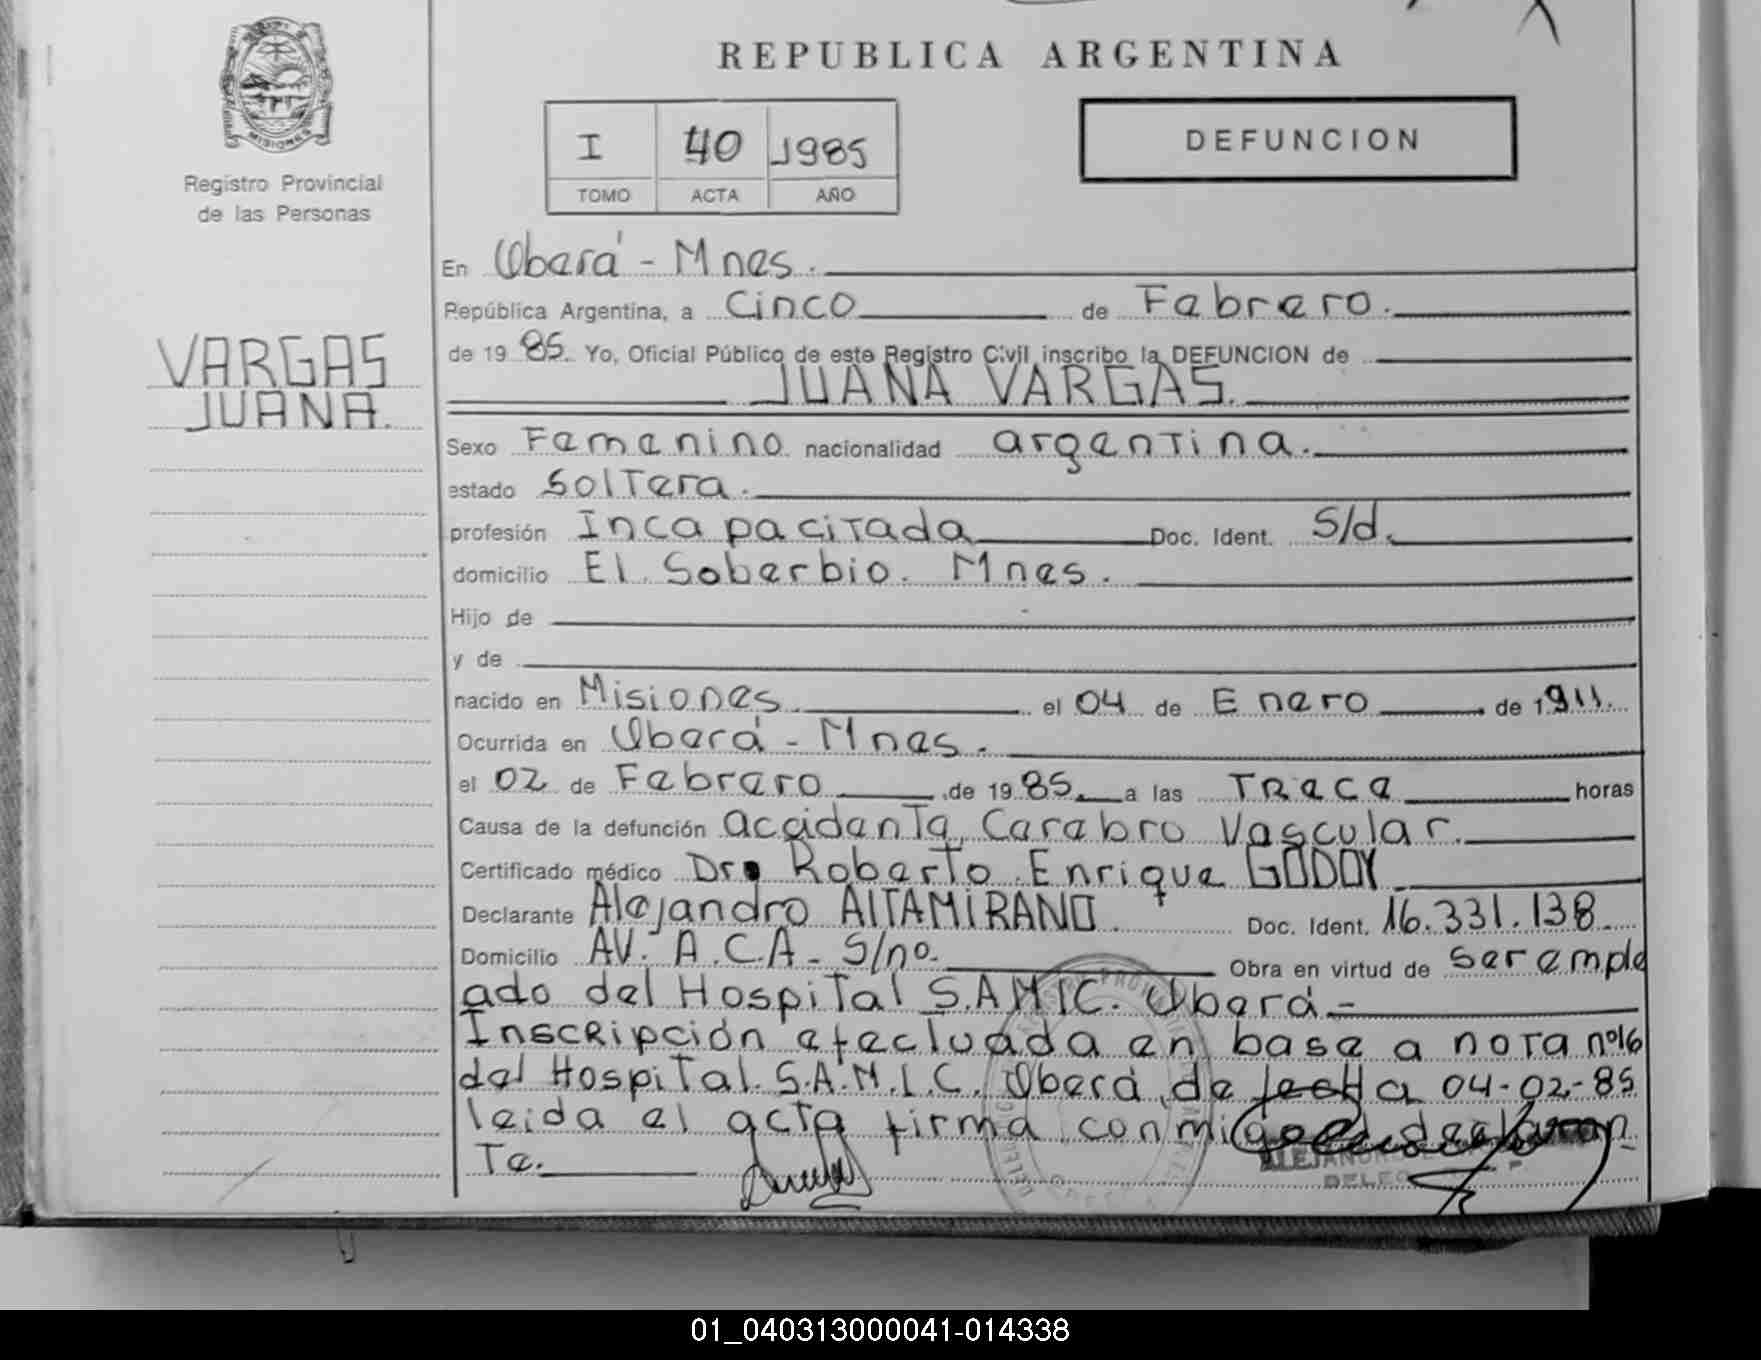 REPUBLICA ARGENTINA
MISIONES
Registro Provincial
de las Personas
I 40 1985
TOMO ACTA AÑO
DEFUNCION
VARGAS
JUANA.
En Oberá - Mnes.
República Argentina, a Cinco de Febrero.
de 19 85. Yo, Oficial Público de este Registro Civil inscribo la DEFUNCION de
JUANA VARGAS.
Sexo Femenino nacionalidad argentina.
estado Soltera.
profesión Incapacitada Doc. Ident. S/d.
domicilio El Soberbio. Mnes.
Hijo de
y de
nacido en Misiones el 04 de Enero de 1911.
Ocurrida en Oberá - Mnes.
el 02 de Febrero de 19 85. a las Trece horas
Causa de la defunción accidente Cerebro Vascular.
Certificado médico Dr. Roberto Enrique GODOY
Declarante Alejandro AlTAMIRANO Doc. Ident. 16.331.138
Domicilio AV. A.C.A. S/nº. Obra en virtud de ser emple
ado del Hospital S.A.M.I.C. Oberá -
Inscripción efectuada en base a nota nº16
del Hospital S.A.M.I.C. Oberá, de fecha 04-02-85
leida el acta firma conmigo
Te.
01_040313000041-014338